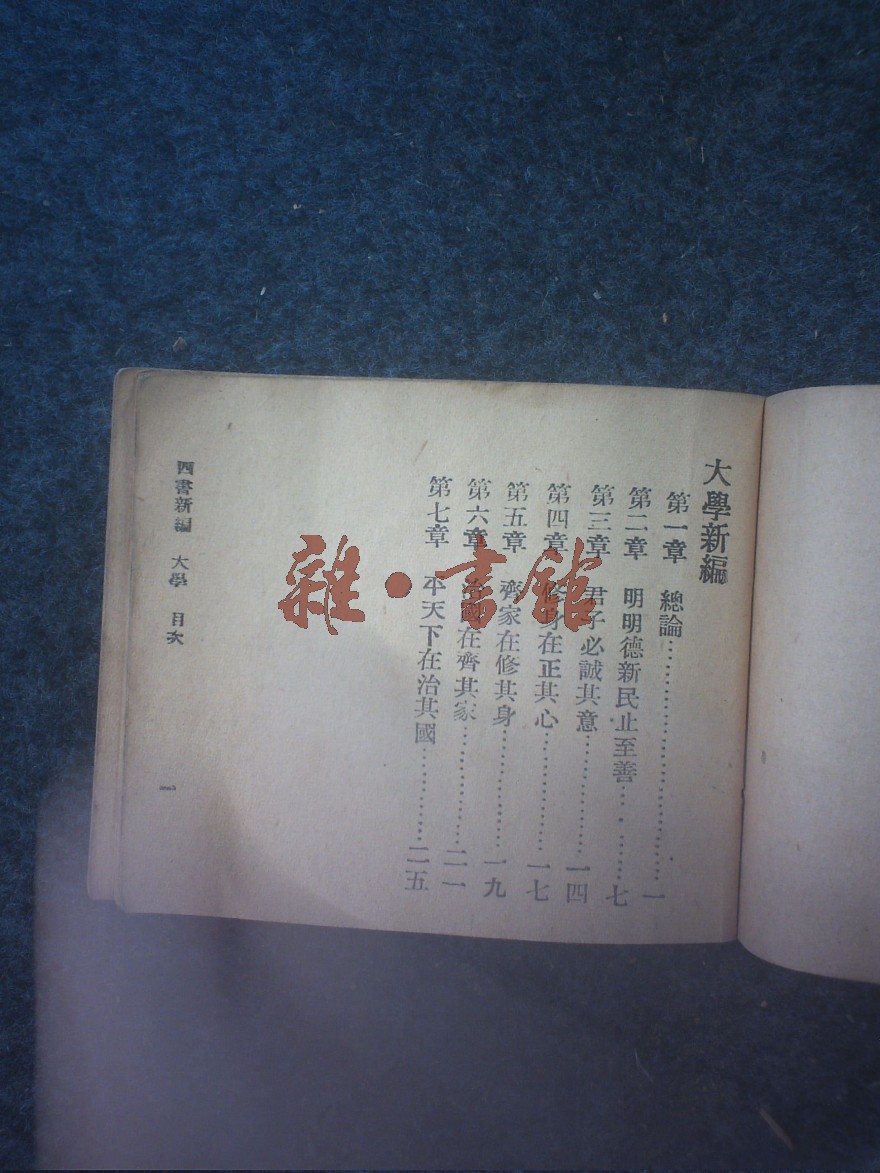 大學新編
第一章 總論……………………一
第二章 明明德新民止至善………七
第三章 君子必誠其意……………一四
第四章 修身在正其心……………一七
第五章 齊家在修其身……………一九
第六章 治國在齊其家……………二一
第七章 平天下在治其國…………二五
四書新編 大學 目次 一
雜·書館